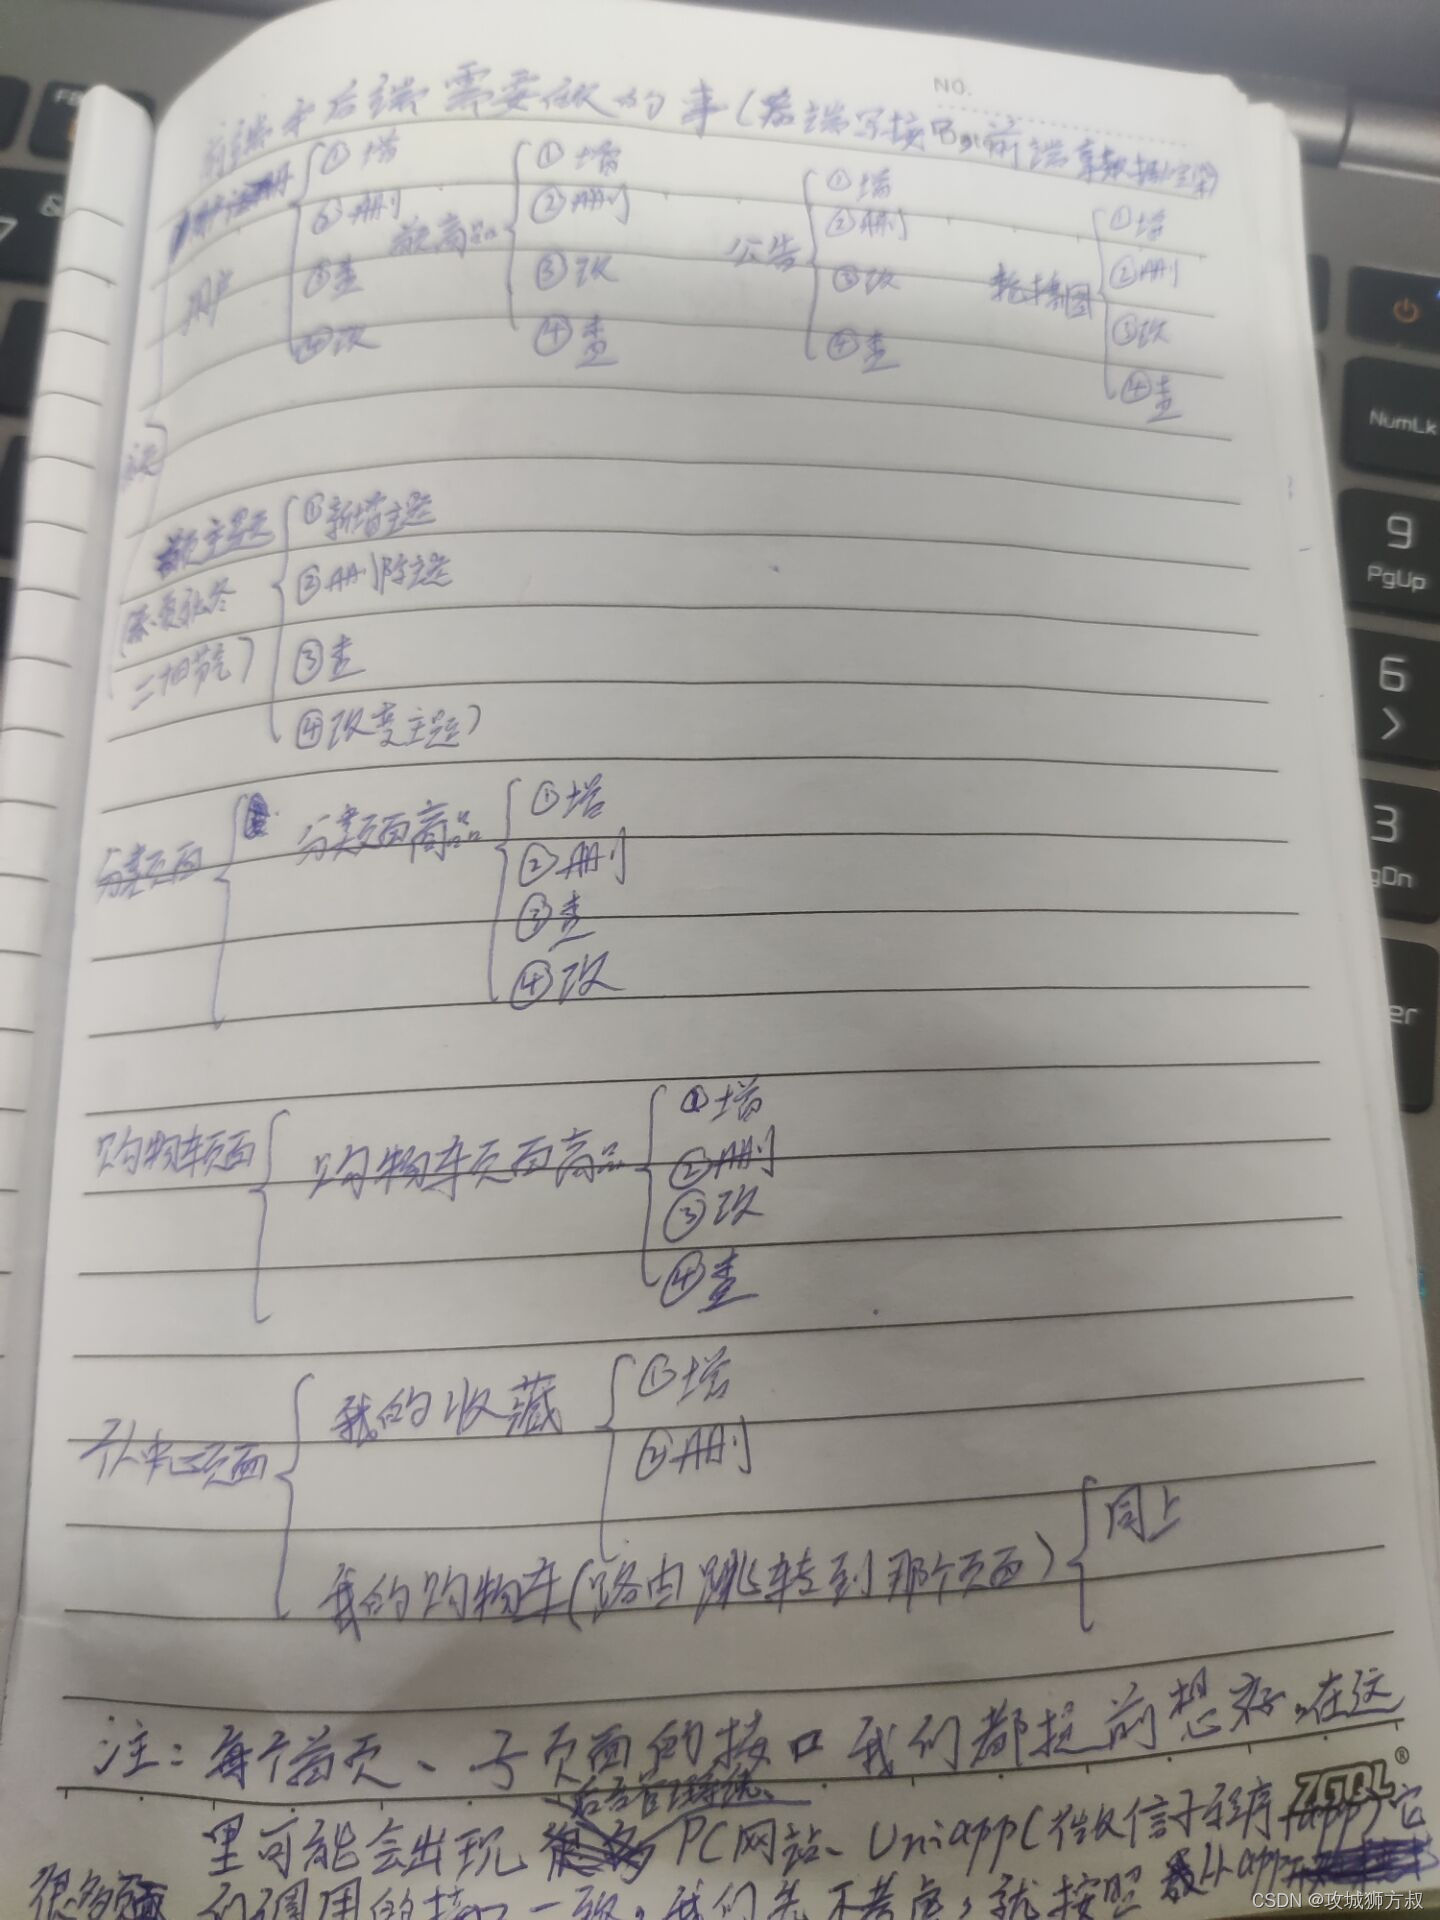 前端和后端需要做的事(后端写接口,前端拿数据渲染)
NO.
用户 ①增 ②删 ③查 ④改
首页商品 ①增 ②删 ③改 ④查
公告 ①增 ②删 ③改 ④查
轮播图 ①增 ②删 ③改 ④查
首页
首页主题 (春夏秋冬 二十四节气) ①新增主题
②删除主题
③查
④改变主题)
分类页面 分类页面商品 ①增
②删
③查
④改
购物车页面 购物车页面商品 ①增
②删
③改
④查
个人中心页面 我的收藏 ①增
②删
我的购物车(路由跳转到那个页面) 同上
注:每个首页、子页面的接口我们都提前想好,在这
后台管理系统、
里可能会出现 PC网站、Uniapp(微信小程序+app)它
很多页面 们调用的接口一致,我们先不考虑,就按照
ZGQL®
NumLk
9
PgUp
6
>
3
gDn
er
7
&
CSDN @攻城狮方叔